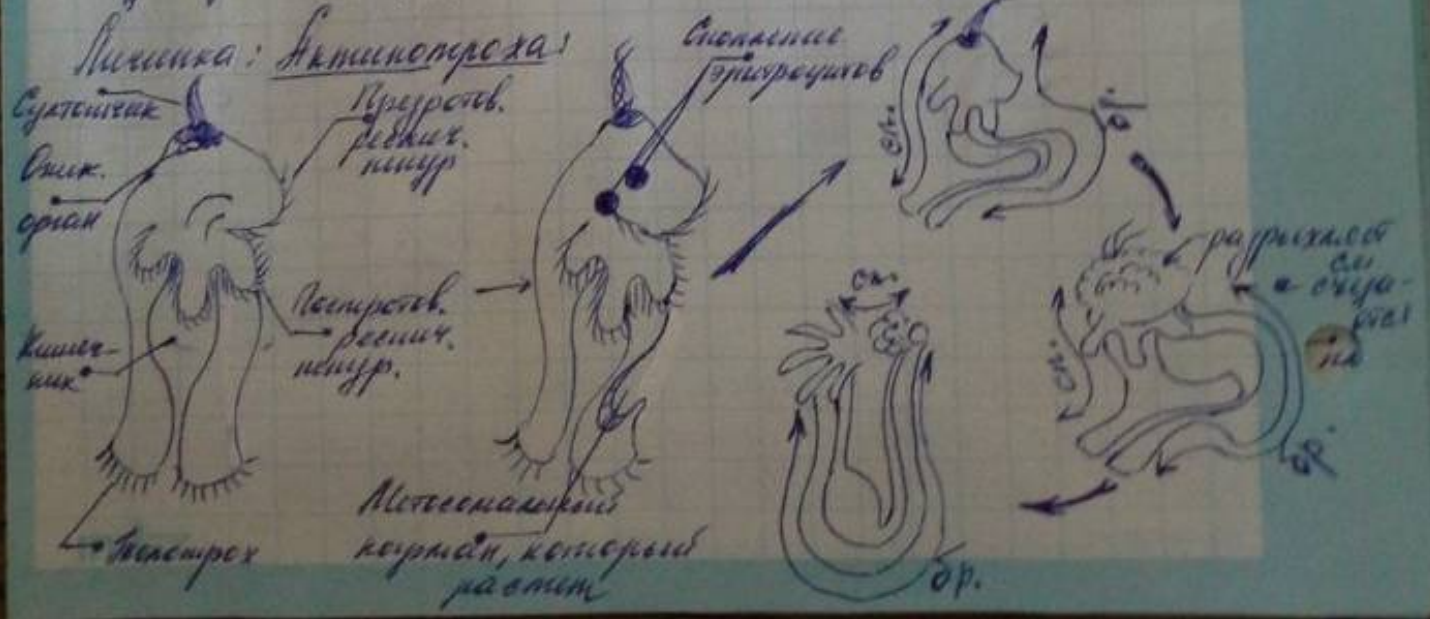 Личинка: Актинотроха:
Султанчик
Апик.
орган
Преротов.
реснич.
шнур
Посторотов.
реснич.
шнур.
Кишеч-
ник
Телотрох
Скопление
эритроцитов
Метасомальный
карман, который
растет
сп.
бр.
разрыхляет
ся
и съеда-
ется
сп.
бр.
сп.
бр.